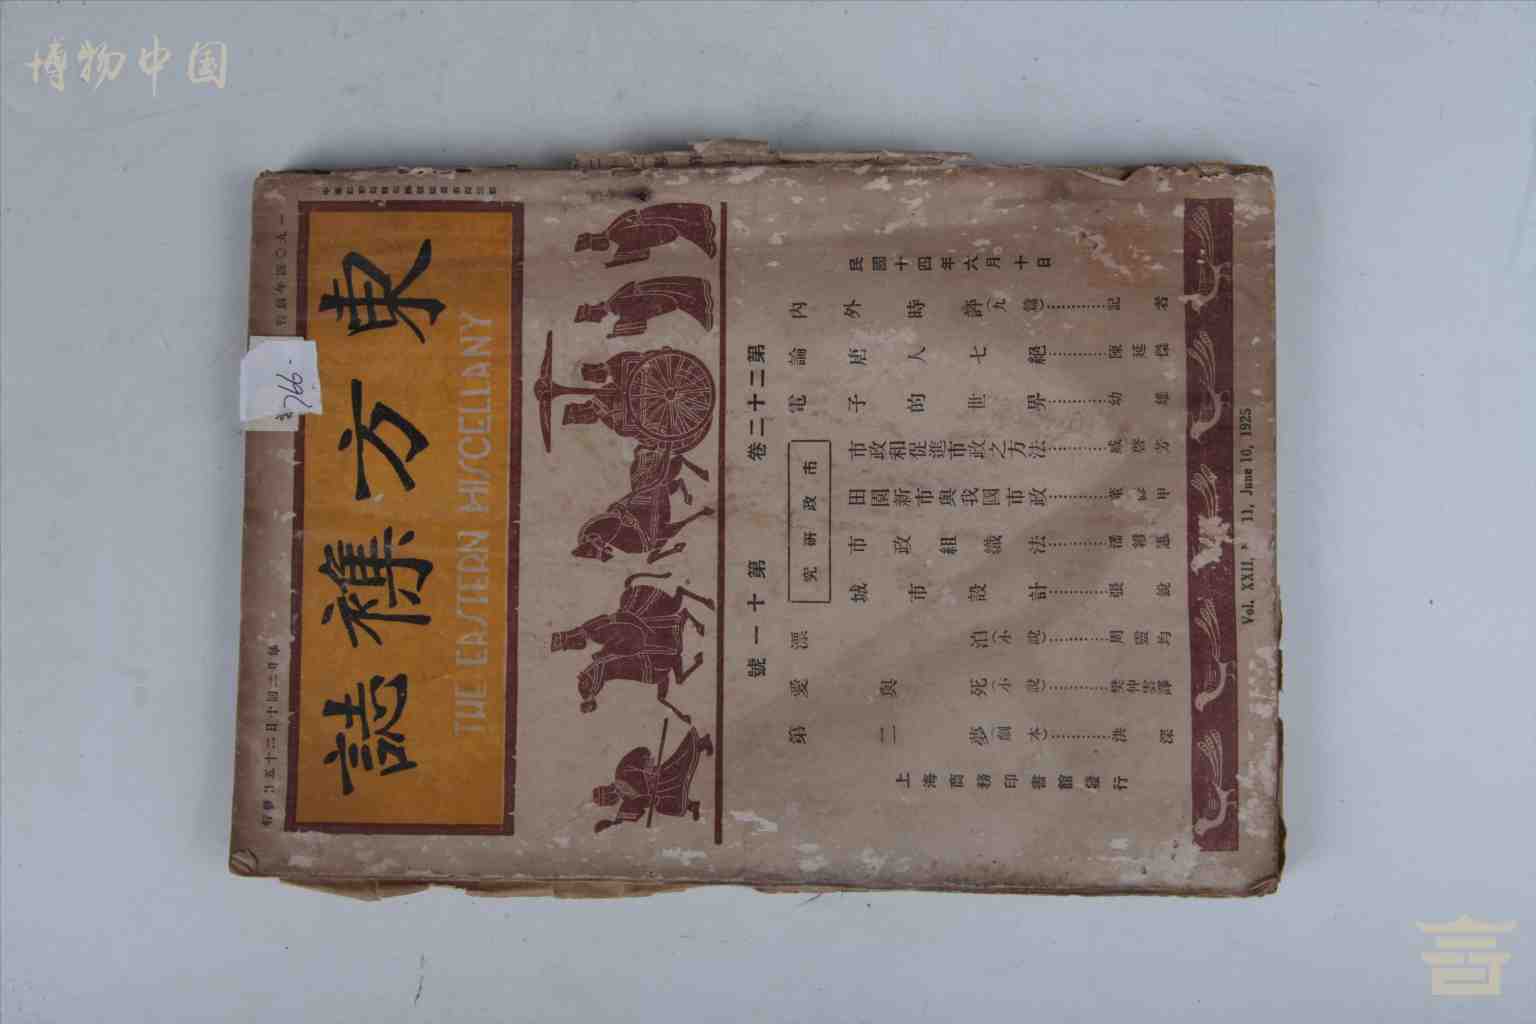 博物中国
中華郵務局特准掛號認為新聞紙類
東方襍誌
THE EASTERN MISCELLANY
766
第二十二卷 第十一號
民國十四年六月十日
內外時評(九篇)…………記者
論唐人七絕…………陳延傑
電子的世界…………幼雄
市政研究
市政和促進市政之方法…………臧啓芳
田園新市與我國市政…………董修甲
市政組織法…………潘紹憲
城市設計…………張銳
漂泊(小說)…………周靈均
愛與死(小說)…………樊仲雲譯
第二夢(劇本)…………洪深
上海商務印書館發行
Vol. XXII, 11, June 10, 1925